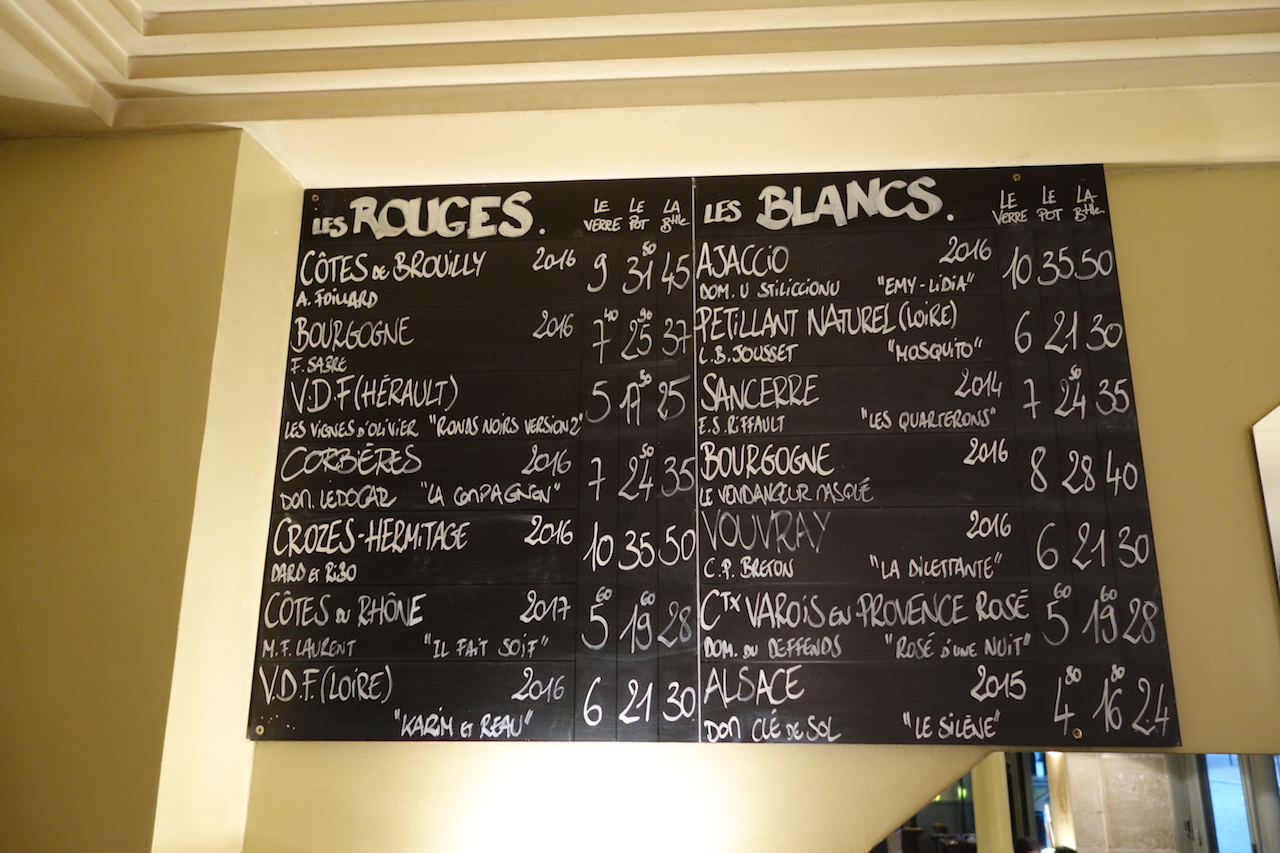 LES ROUGES. LE VERRE LE POT LA Btlle
CÔTES de BROUILLY 2016 9 31 50 45
A. FOILLARD
BOURGOGNE 2016 7 40 25 90 37
F. SABRE
V.D.F (HÉRAULT) 5 17 50 25
LES VIGNES D'OLIVIER "RONDS NOIRS VERSION 2"
CORBIÈRES 2016 7 24 50 35
DOM. LEDOGAR "LA COMPAGNON"
CROZES-HERMITAGE 2016 10 35 50
DARD ET RIBO
CÔTES DU RHÔNE 2017 5 60 19 60 28
M.F. LAURENT "IL FAIT SOIF"
V.D.F. (LOIRE) 2016 6 21 30
"KARIM ET REAU"
LES BLANCS. LE VERRE LE POT LA Btlle
AJACCIO 2016 10 35 50
DOM. U STILICCIONU "EMY-LIDIA"
PETILLANT NATUREL (LOIRE) 6 21 30
L.B. JOUSSET "MOSQUITO"
SANCERRE 2014 7 24 50 35
E.S. RIFFAULT "LES QUARTERONS"
BOURGOGNE 2016 8 28 40
LE VENDANGEUR MASQUÉ
VOUVRAY 2016 6 21 30
C.P. BRETON "LA DILETTANTE"
CTX VAROIS EN PROVENCE ROSÉ 5 60 19 60 28
DOM. DU DEFFENDS "ROSÉ D'UNE NUIT"
ALSACE 2015 4 80 16 80 24
DOM CLÉ DE SOL "LE SILÈNE"